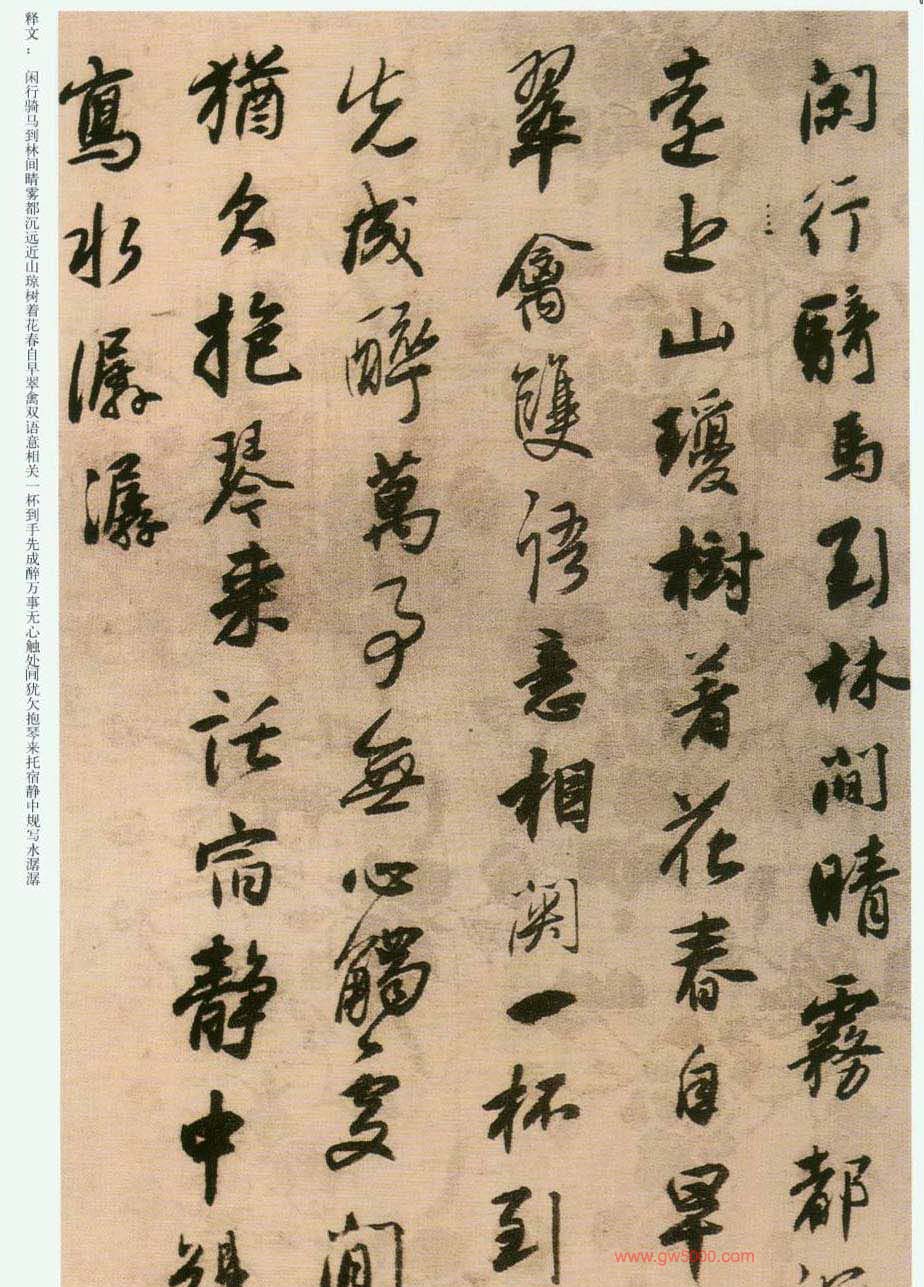 闲行骑马到林间晴雾都
远近山琼树著花春自早
翠禽双语意相关一杯到
先成醉万事无心触处闲
犹欠抱琴来托宿静中
写水潺潺
释文： 闲行骑马到林间晴雾都沉远近山琼树着花春自早翠禽双语意相关一杯到手先成醉万事无心触处闲犹欠抱琴来托宿静中规写水潺潺
www.gw5000.com